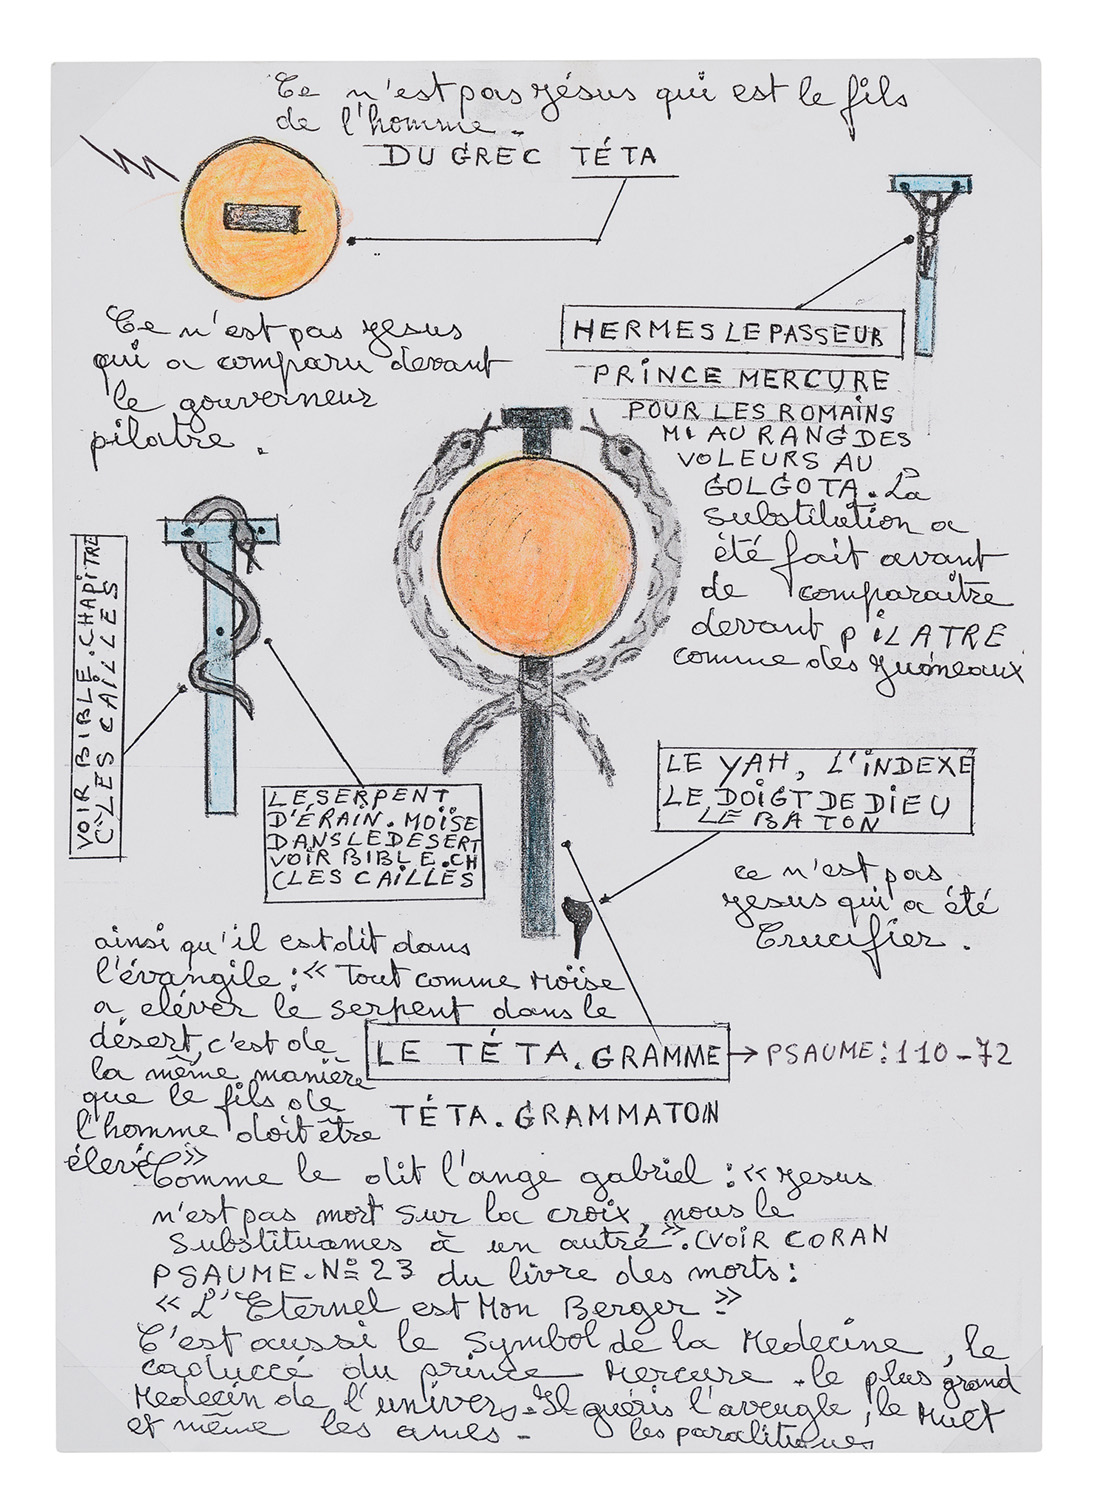 Ce n'est pas Jésus qui est le fils
de l'homme.
DU GREC TÉTA
HERMES LE PASSEUR
PRINCE MERCURE
POUR LES ROMAINS
Mi AU RANG DES
VOLEURS AU
GOLGOTA. La
substitution a
été fait avant
de comparaitre
devant PILATRE
comme des
Ce n'est pas Jesus
qui a comparu devant
le gouverneur
pilatre.
VOIR BIBLE. CHAPITRE
C"LES CAILLES
LE SERPENT
D'ÉRAIN. MOÏSE
DANS LE DESERT
VOIR BIBLE. CH
(LES CAILLES
LE YAH, L'INDEXE
LE DOIGT DE DIEU
LE BATON
ce n'est pas
Jesus qui a été
Crucifier.
ainsi qu'il est dit dans
l'évangile : « Tout comme Moïse
a eléver le serpent dans le
désert, c'est de
la même manière
que le fils de
l'homme doit être
élevé »
LE TÉTA. GRAMME → PSAUME : 110 - 72
TÉTA. GRAMMATON
Comme le dit l'ange gabriel : « Jesus
n'est pas mort sur la croix, nous le
Substituames à un autre ». (VOIR CORAN
PSAUME. N° 23 du livre des morts :
« L'Eternel est Mon Berger »
C'est aussi le Symbol de la Medecine, le
caduccé du prince Mercure. le plus grand
Medecin de l'univers. Il guéris l'aveugle, le Muet
et même les ames. - les paralitiques